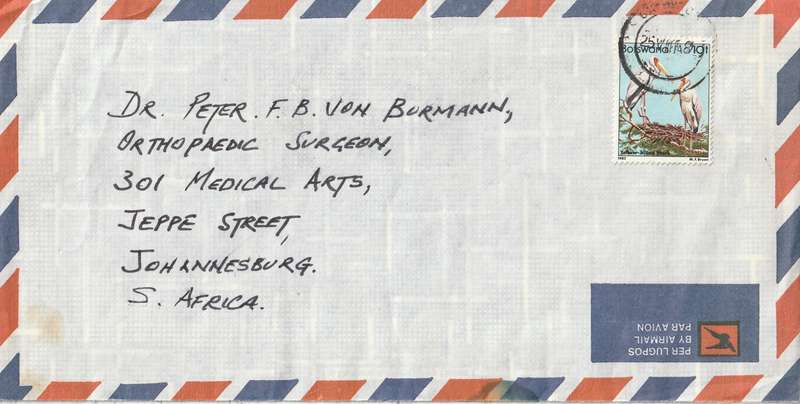 DR. PETER. F. B. VON BORMANN,
ORTHOPAEDIC SURGEON,
301 MEDICAL ARTS,
JEPPE STREET,
JOHANNESBURG.
S. AFRICA.
Botswana 10t
1982
PER LUGPOS
BY AIRMAIL
PAR AVION